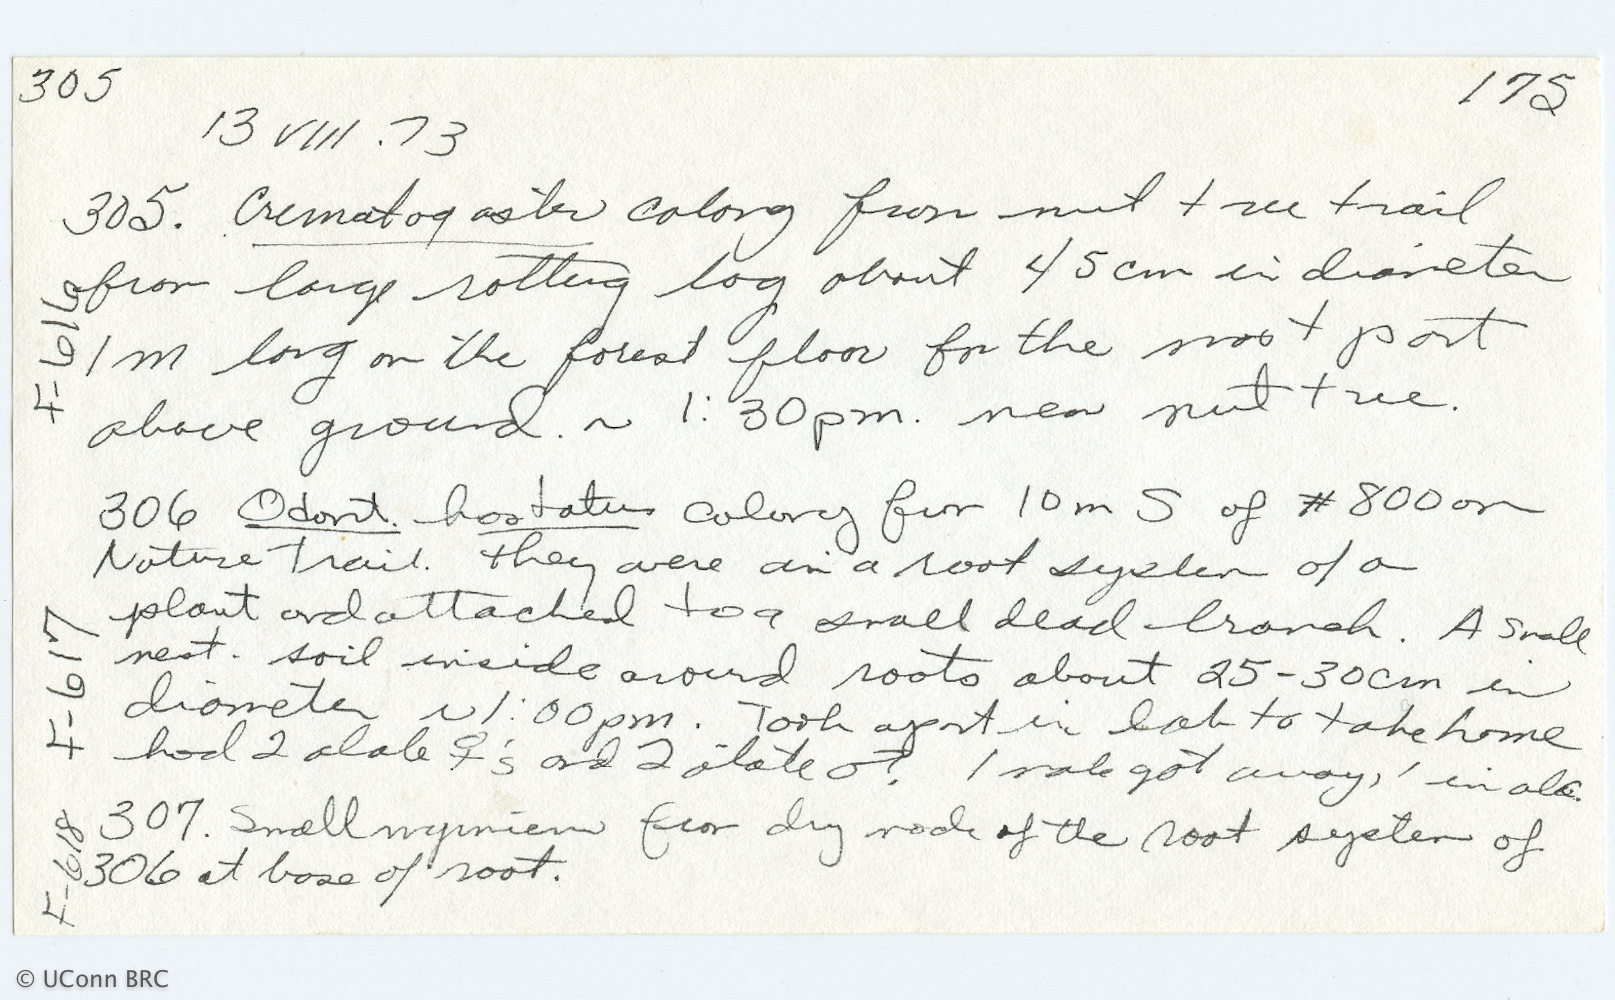 305
175
13 VIII .73
305. Crematogaster colony from nut tree trail
from large rotting log about 45cm in diameter
1 m long on the forest floor for the most part
above ground. ~ 1:30pm. near nut tree.
F-616
306 Odont. hastatus colony from 10m S of #800 on
Nature Trail. they were in a root system of a
plant and attached to a small dead branch. A small
nest. soil inside around roots about 25-30cm in
diameter ~1:00pm. Took apart in lab to take home
had 2 alate ♀'s and 2 alate ♂. 1 male got away, 1 in alc.
F-617
307. Small myrmicin from dry node of the root system of
306 at base of root.
F-618
© UConn BRC